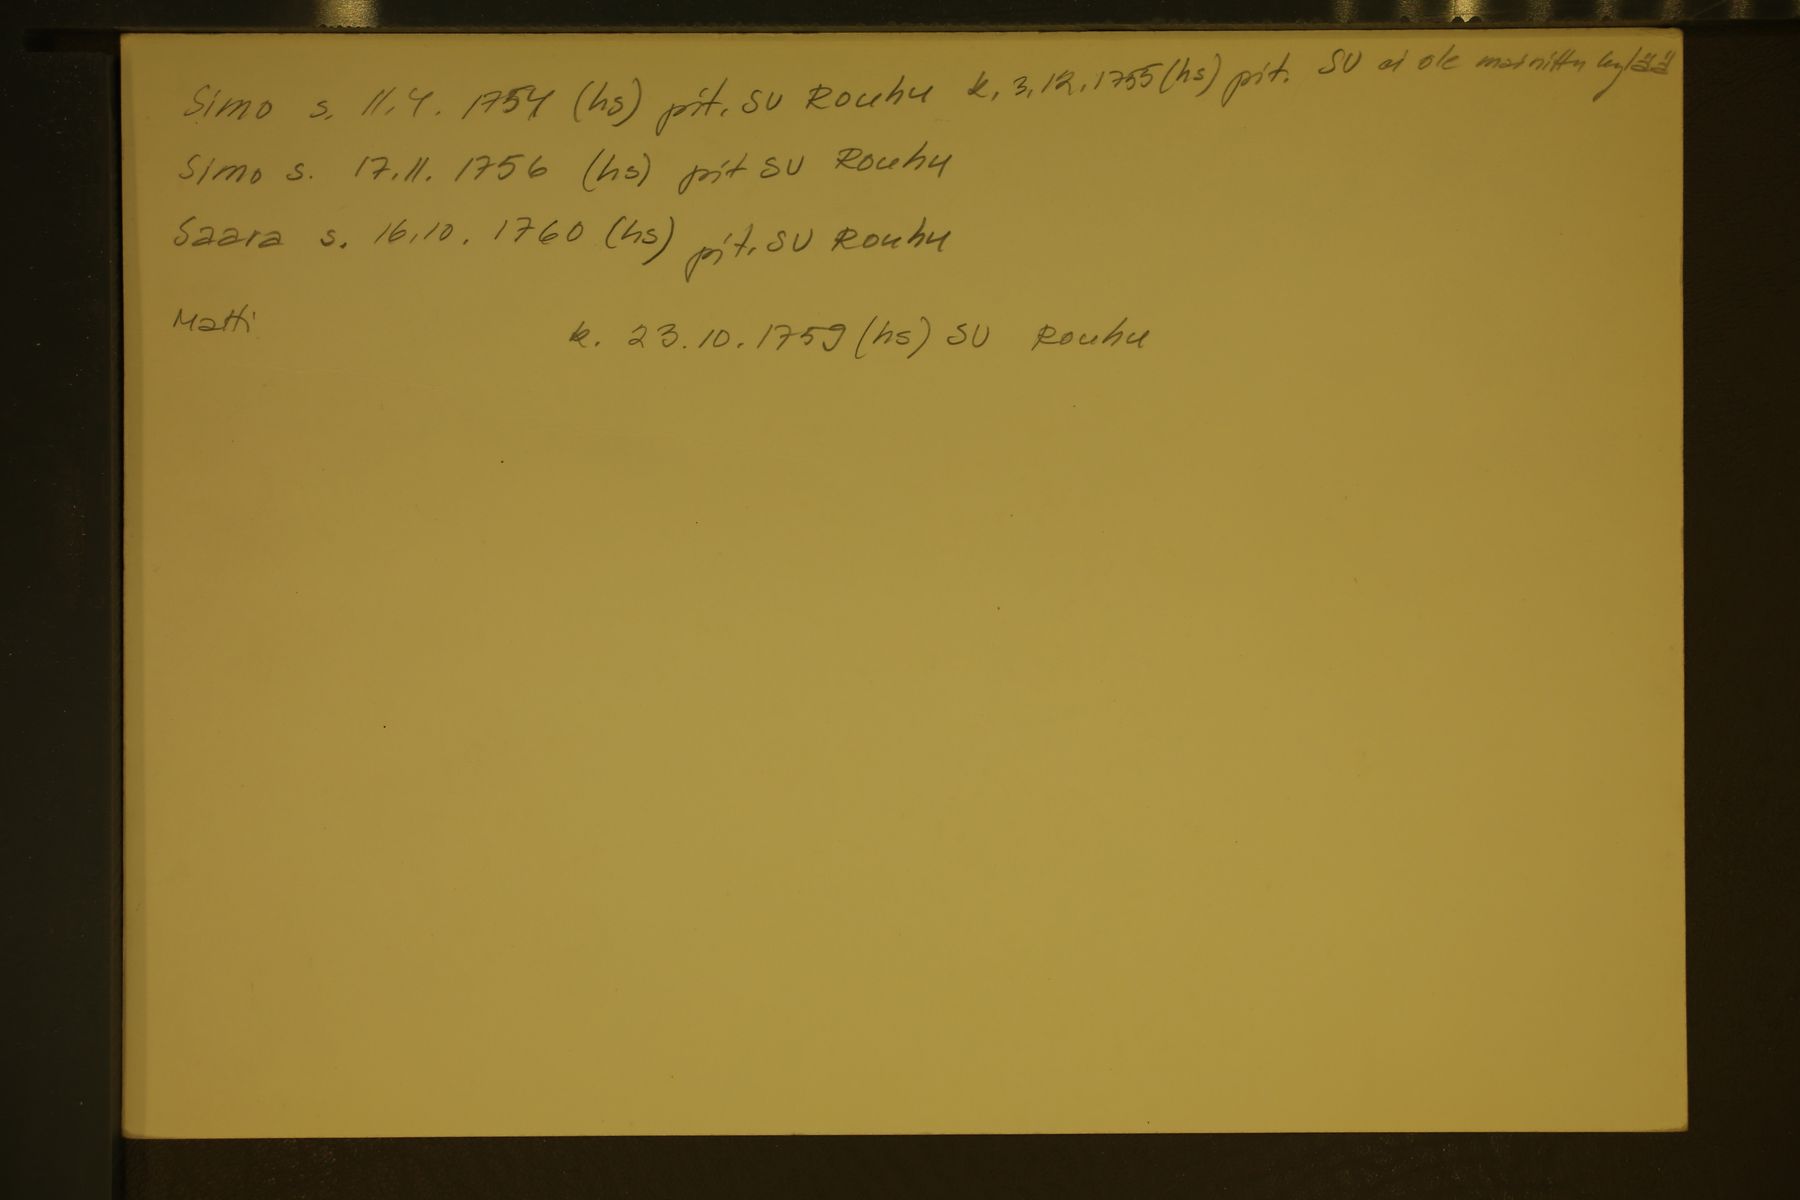 Simo s. 11.4. 1754 (hs) pit. SU Rouhu k. 3.12.1755 (hs) pit. SU ei ole mainittu kylää
Simo s. 17.11. 1756 (hs) pit SU Rouhu
Saara s. 16.10. 1760 (hs) pit. SU Rouhu
Matti k. 23.10.1759 (hs) SU Rouhu